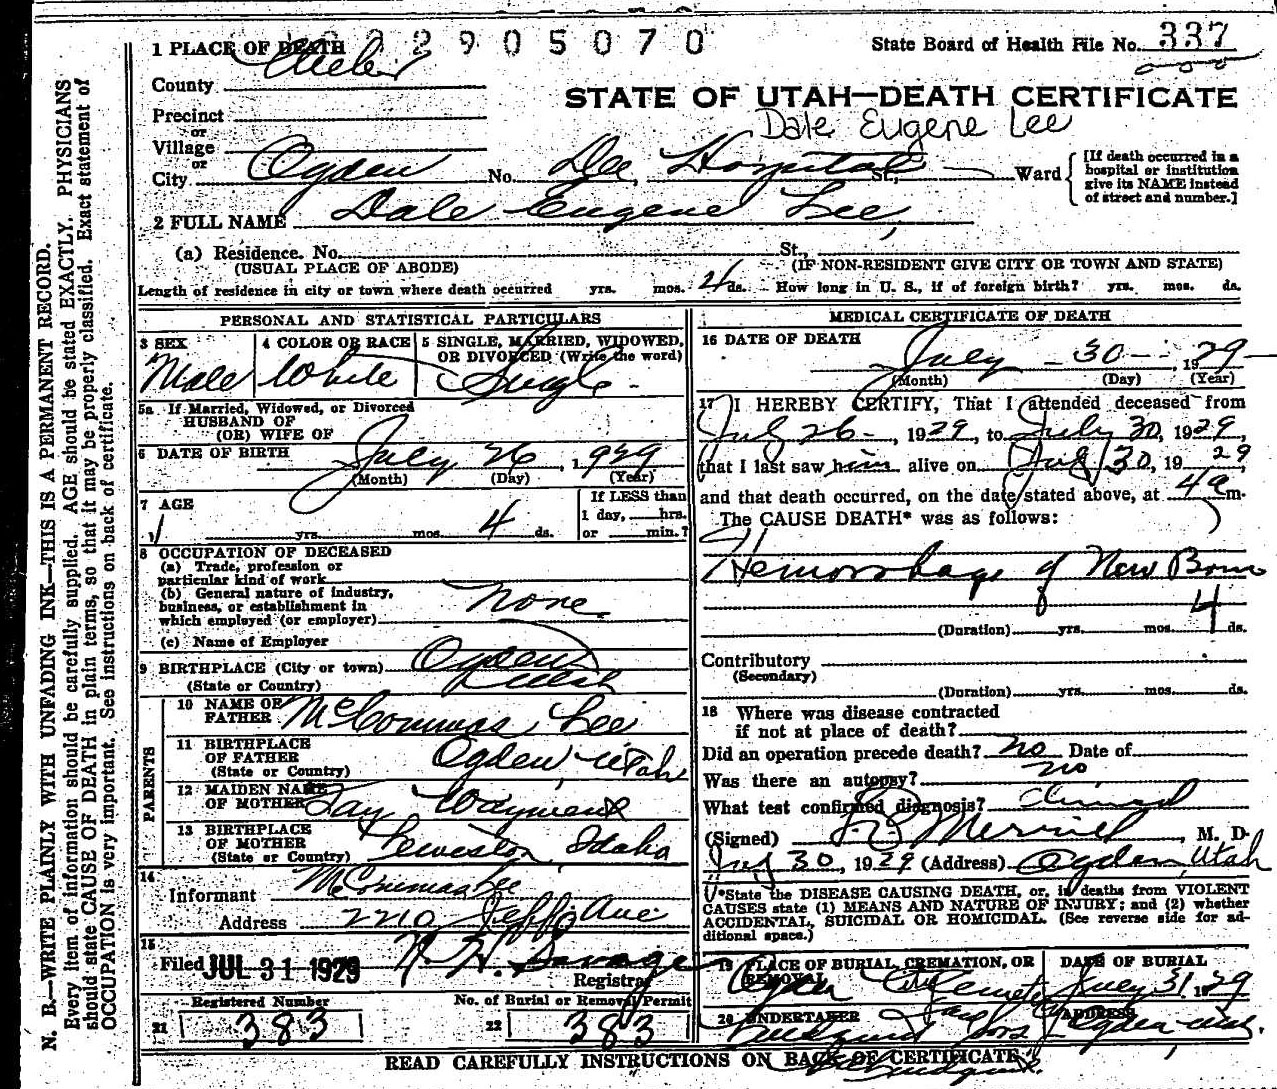 2905070
State Board of Health File No. 337
1 PLACE OF DEATH
County Weber
STATE OF UTAH—DEATH CERTIFICATE
Precinct
or
Dale Eugene Lee
Village
or
City. Ogden No. Dee Hospital St., Ward
[If death occurred in a hospital or institution give its NAME instead of street and number.]
2 FULL NAME Dale Eugene Lee
(a) Residence. No. St.,
(USUAL PLACE OF ABODE) (IF NON-RESIDENT GIVE CITY OR TOWN AND STATE)
Length of residence in city or town where death occurred yrs. mos. 4 ds. How long in U. S., if of foreign birth? yrs. mos. ds.
PERSONAL AND STATISTICAL PARTICULARS
3 SEX Male
4 COLOR OR RACE White
5 SINGLE, MARRIED, WIDOWED, OR DIVORCED (Write the word) Single
5a If Married, Widowed, or Divorced
HUSBAND OF
(OR) WIFE OF
6 DATE OF BIRTH July 26, 1929
(Month) (Day) (Year)
7 AGE yrs. mos. 4 ds.
If LESS than
1 day, hrs.
or min.?
8 OCCUPATION OF DECEASED
(a) Trade, profession or
particular kind of work
(b) General nature of industry,
business, or establishment in
which employed (or employer) None
(c) Name of Employer
9 BIRTHPLACE (City or town) Ogden
(State or Country) Utah
PARENTS
10 NAME OF FATHER McCommas Lee
11 BIRTHPLACE OF FATHER (State or Country) Ogden, Utah
12 MAIDEN NAME OF MOTHER
13 BIRTHPLACE OF MOTHER (State or Country) Lewiston, Idaho
14
Informant McCommas Lee
Address 2210 Jeff Ave
15
Filed JUL 31 1929
Registrar
Registered Number
21 383
No. of Burial or Removal Permit
22 383
MEDICAL CERTIFICATE OF DEATH
16 DATE OF DEATH
July 30, 1929
(Month) (Day) (Year)
17 I HEREBY CERTIFY, That I attended deceased from
July 26, 1929, to July 30, 1929,
that I last saw him alive on July 30, 1929,
and that death occurred, on the date stated above, at 4 a m.
The CAUSE DEATH* was as follows:
Hemorrhage of New Born
(Duration) yrs. mos. 4 ds.
Contributory
(Secondary)
(Duration) yrs. mos. ds.
18 Where was disease contracted
if not at place of death?
Did an operation precede death? no Date of
Was there an autopsy? no
What test confirmed diagnosis? Clinical
(Signed) Merrill, M. D.
July 30, 1929 (Address) Ogden, Utah
*State the DISEASE CAUSING DEATH, or, in deaths from VIOLENT
CAUSES state (1) MEANS AND NATURE OF INJURY; and (2) whether
ACCIDENTAL, SUICIDAL OR HOMICIDAL. (See reverse side for ad-
ditional space.)
19 PLACE OF BURIAL, CREMATION, OR REMOVAL Ogden City Cemetery
DATE OF BURIAL July 31 1929
20 UNDERTAKER
ADDRESS Ogden Utah.
READ CAREFULLY INSTRUCTIONS ON BACK OF CERTIFICATE
N. B.—WRITE PLAINLY WITH UNFADING INK—THIS IS A PERMANENT RECORD.
Every item of information should be carefully supplied. AGE should be stated EXACTLY. PHYSICIANS
should state CAUSE OF DEATH in plain terms, so that it may be properly classified. Exact statement of
OCCUPATION is very important. See instructions on back of certificate.